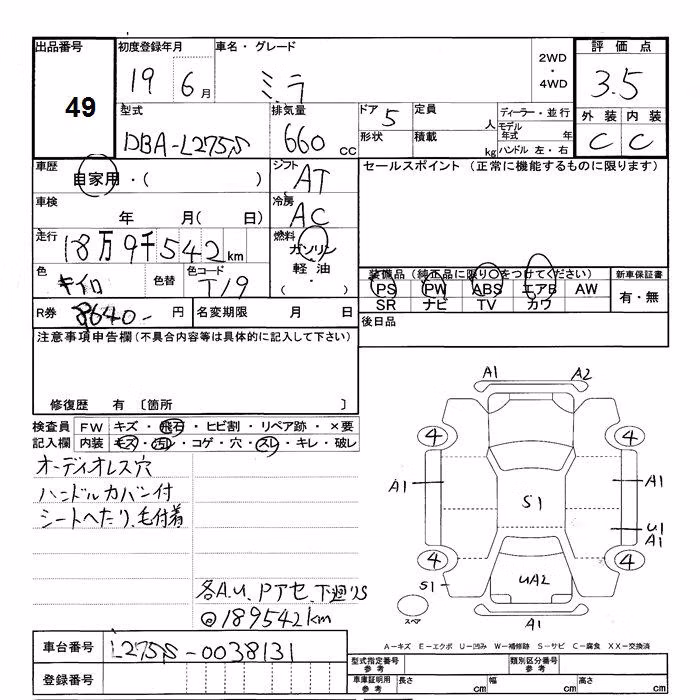 出品番号
49
初度登録年月
19 6月
車名・グレード
ミラ
2WD
・
4WD
評価点
3.5
外装 内装
C C
型式
DBA-L275S
排気量
660 CC
ドア 5
形状
定員 人
積載 kg
ディーラー・並行
モデル年式 年
ハンドル 左・右
車歴
自家用・( )
シフト
AT
セールスポイント (正常に機能するものに限ります)
車検
年 月( 日)
冷房
AC
走行
18万9千542km
燃料
ガソリン
軽油
( ・ )
色
キイロ
色替
色コード
T19
装備品 (純正品に限り○をつけてください)
PS PW ABS エアB AW
SR ナビ TV カワ
新車保証書
有・無
R券 8640- 円
名変期限 月 日
後日品
注意事項申告欄(不具合内容等は具体的に記入して下さい)
修復歴 有 〔箇所 〕
検査員
記入欄
FW キズ・飛石・ヒビ割・リペア跡・×要
内装 キズ・汚レ・コゲ・穴・スレ・キレ・破レ
オーディオレス穴
ハンドルカバー付
シートへたり、毛付着
各A.U、Pアセ、下廻りS
@189542km
A1 A2
4 4
A1 A1
S1
U1
A1
4 4
S1
UA2
スペア
A1
A-キズ E-エクボ U-凹み W-補修跡 S-サビ C-腐食 XX-交換済
車台番号
L275S-0038131
登録番号
型式指定番号
参考
類別区分番号
参考
車庫証明用
参考
長さ cm 幅 cm 高さ cm